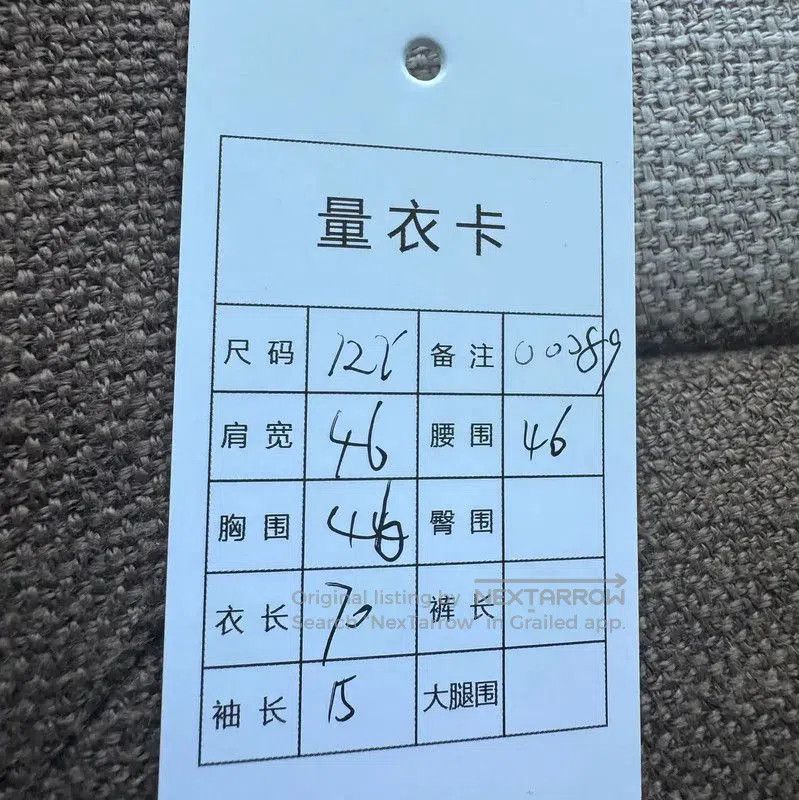 量衣卡
尺码 備注 00289
肩宽 46 腰围 46
胸围 46 臀围
衣长 70 裤长
袖长 15 大腿围
Original listing by NEXTARROW
Search "NexTarrow" in Grailed app.